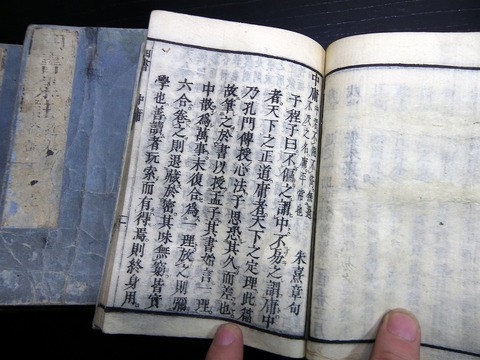 中庸
中者不偏不倚無過
不及之名庸平常也
朱熹章句
子程子曰不偏之謂中不易之謂庸中
者天下之正道庸者天下之定理此篇
乃孔門傳授心法子思恐其久而差也
故筆之於書以授孟子其書始言一理
中散爲萬事末復合爲一理放之則彌
六合卷之則退藏於密其味無窮皆實
學也善讀者玩索而有得焉則終身用
四書 中庸 一